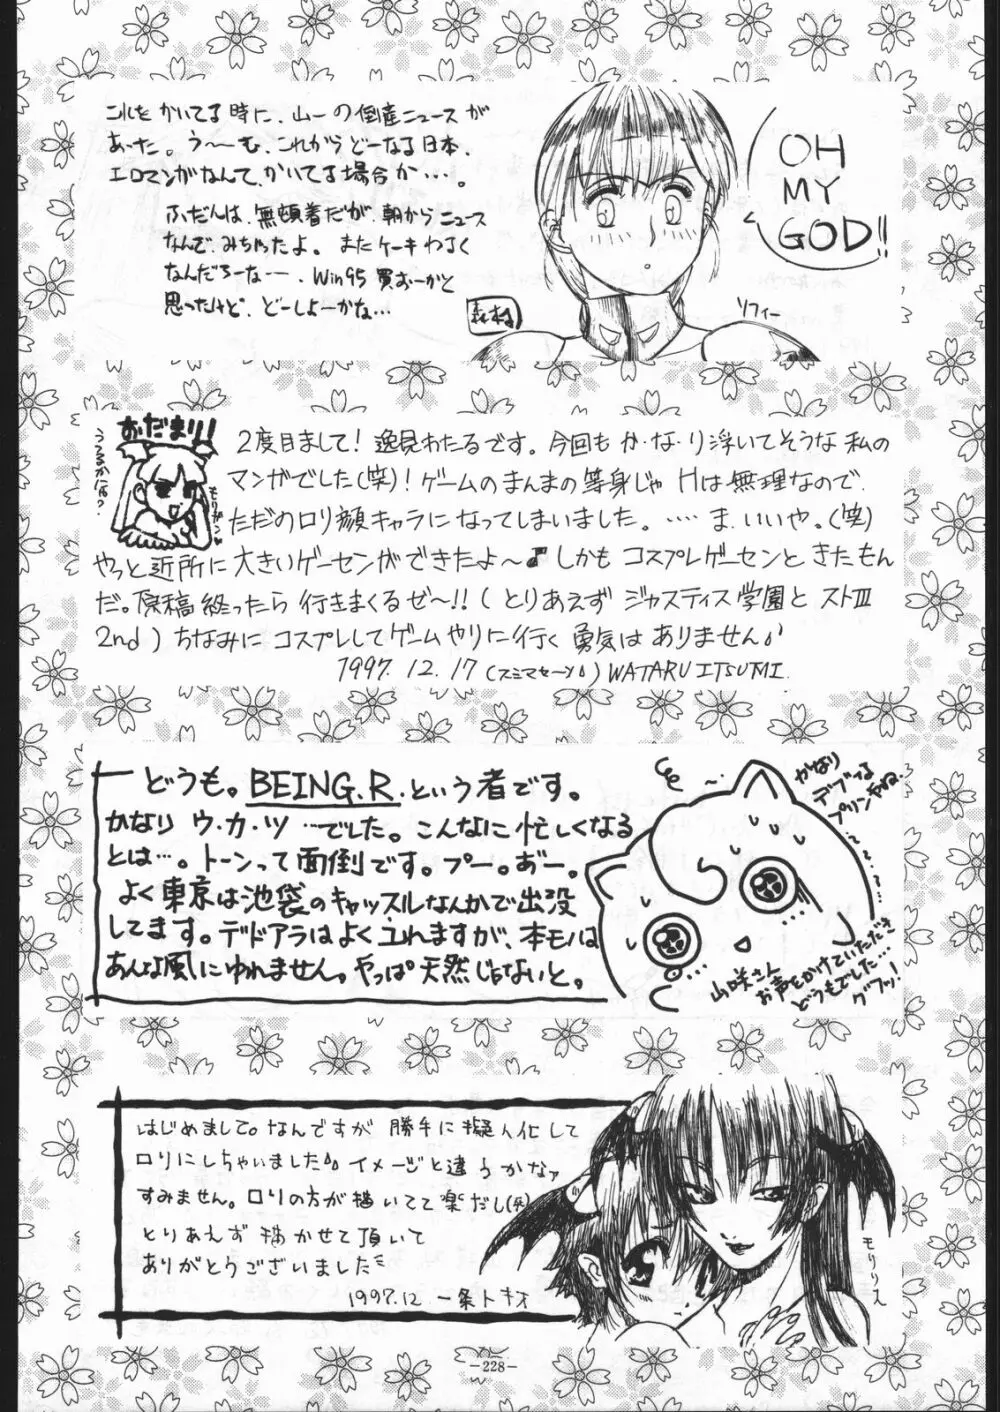 これをかいてる時に、山一の倒産ニュースが
あった。う〜む、これからどーなる日本、
エロマンガなんて、かいてる場合か…。
ふだんは、無頓着だが、朝からニュース
なんで、みちゃったよ。またケーキわるく
なんだろーなー…、Win95買おーかと
思ったけど、どーしよーかな…
森村
OH
MY
GOD!!
ソフィー
おだまり!
うるさかにね?
モリガン
2度目まして!逸見わたるです。今回もか・な・り浮いてそうな私の
マンガでした(笑)!ゲームのまんまの等身じゃHは無理なので、
ただのロリ顔キャラになってしまいました。……ま、いいや。(笑)
やっと近所に大きいゲーセンができたよ〜♪しかもコスプレゲーセンときたもん
だ。原稿終ったら行きまくるぜ〜!!(とりあえずジャスティス学園とストⅢ
2nd)ちなみにコスプレしてゲームやりに行く勇気はありません
1997. 12. 17(スミマセ〜ン)WATARU ITSUMI.
どうも。BEING.R.という者です。
かなりウ・カ・ツ…でした。こんなに忙しくなる
とは…。トーンって面倒です。プー。あ゛ー。
よく東京は池袋のキャッスルなんかで出没
してます。デドアラはよくユれますが、本モノは
あんな風にゆれません。やっぱ天然じゃないと。
かなり
デブィな
プリンやね。
山咲さん
お声をかけていただき
どうもでした…
グフッ!
はじめまして。なんですが勝手に擬人化して
ロリにしちゃいました イメージと違うかなァ
すみません。ロリの方が描いてて楽だし(死)
とりあえず描かせて頂いて
ありがとうございました
1997.12 一条トキオ
モリリえ
-228-